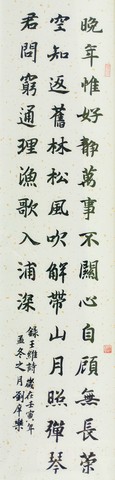 晚年惟好靜萬事不關心自顧無長策
空知返舊林松風吹解帶山月照彈琴
君問窮通理漁歌入浦深
錄王維詩歲在壬寅年
孟冬之月劉